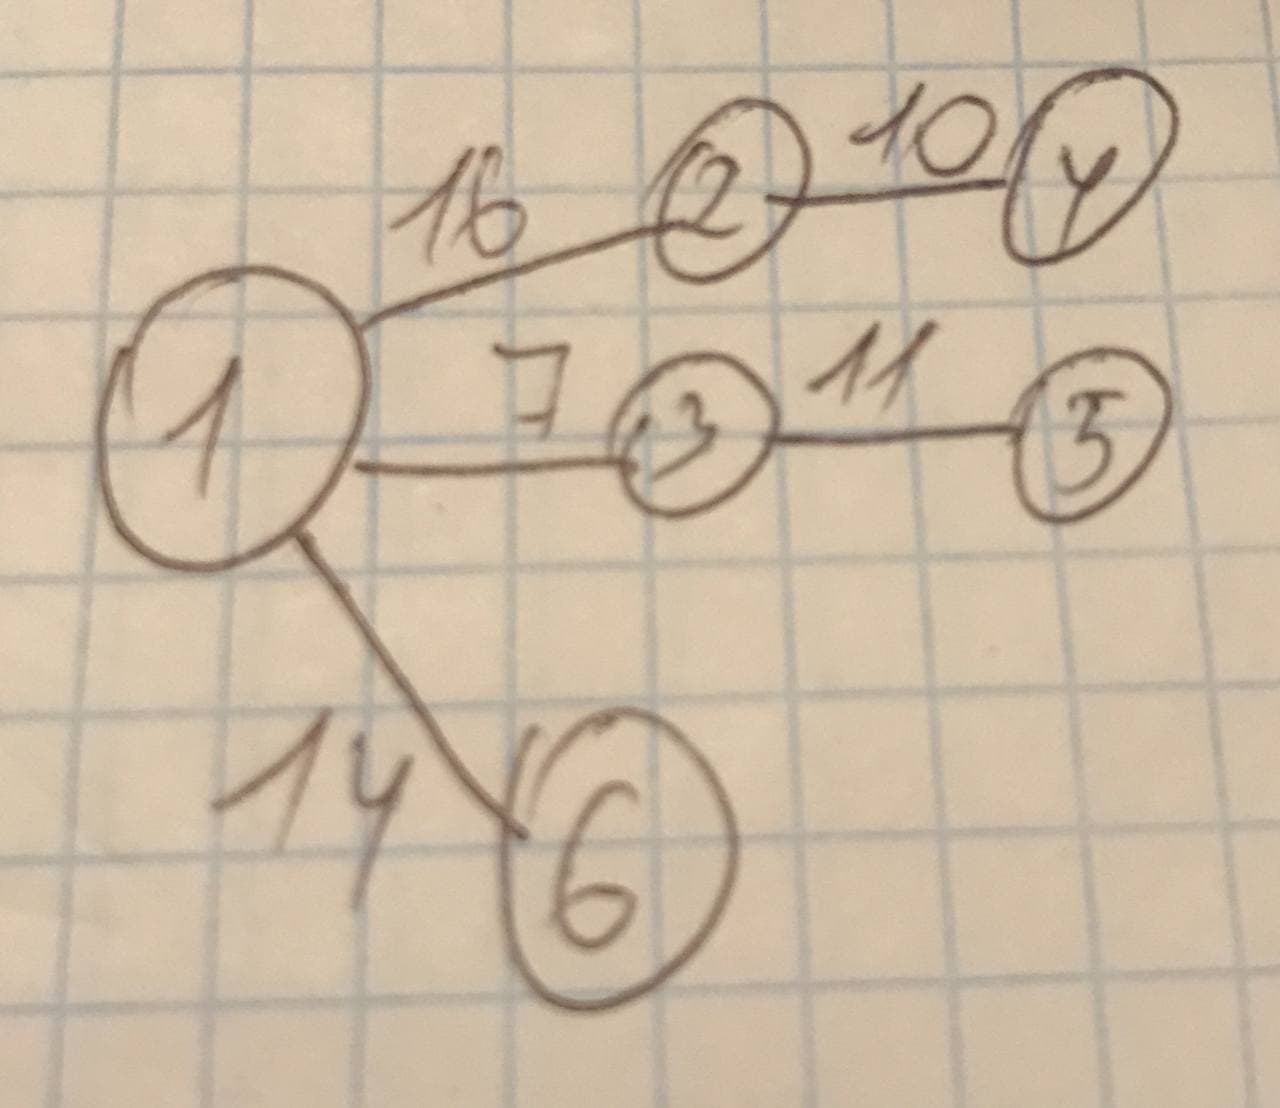 16 2 10 4
1 7 3 11 5
14 6